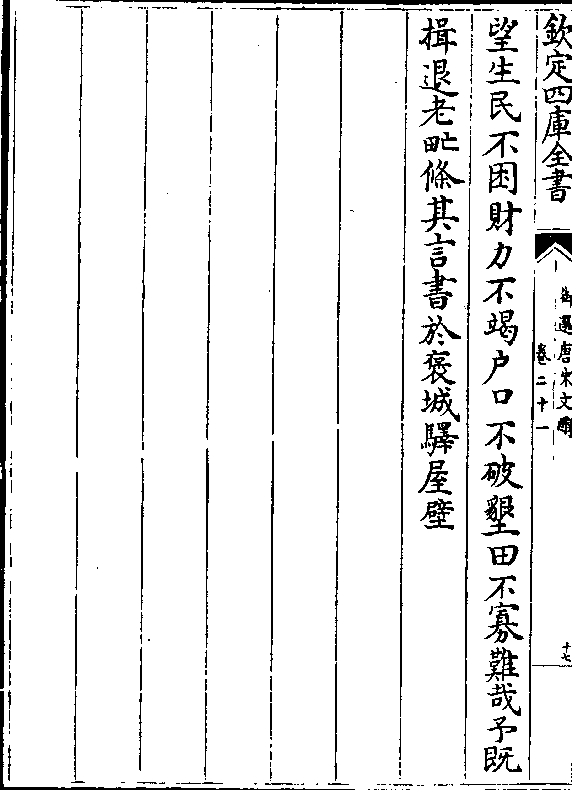 欽定四庫全書
御選唐宋文醇
卷二十一
十七
望生民不困財力不竭户口不破墾田不寡難哉予既
揖退老甿條其言書於褒城驛屋壁